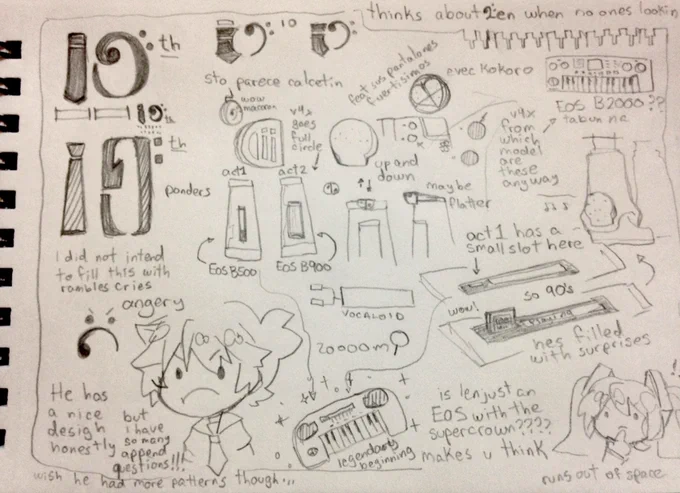 thinks about len when no ones lookin
10th
10
sto parece calcetin
feat sus pantalones
fuertisimos
evec kokoro
EOS B2000 ??
tabun ne
wow
10th
19th
v4x
goes
full
circle
v4x
from
which
model
are
these
anyway
ponders
act1
act2
up and
down
maybe
flatter
EOS B500
EOS B900
act 1 has a
small slot here
I did not intend
to fill this with
rambles cries
so 90's
wow!
VOCALOID
hes filled
with surprises
angery
20000m
He has
a nice
design
honestly
but
i have
so many
append
questions!!!
legendarys
beginning
is len just an
EOS with the
supercrown????
makes u think
wish he had more patterns though...
runs out of space